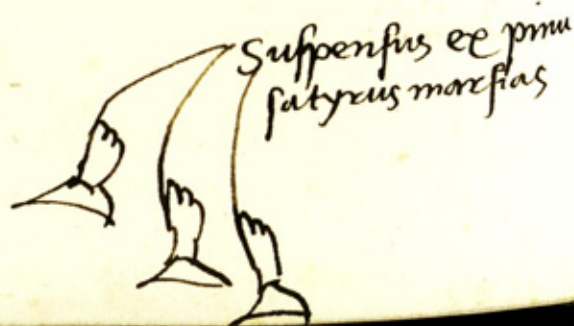 Suspensus ex pinu
satyrus marsias